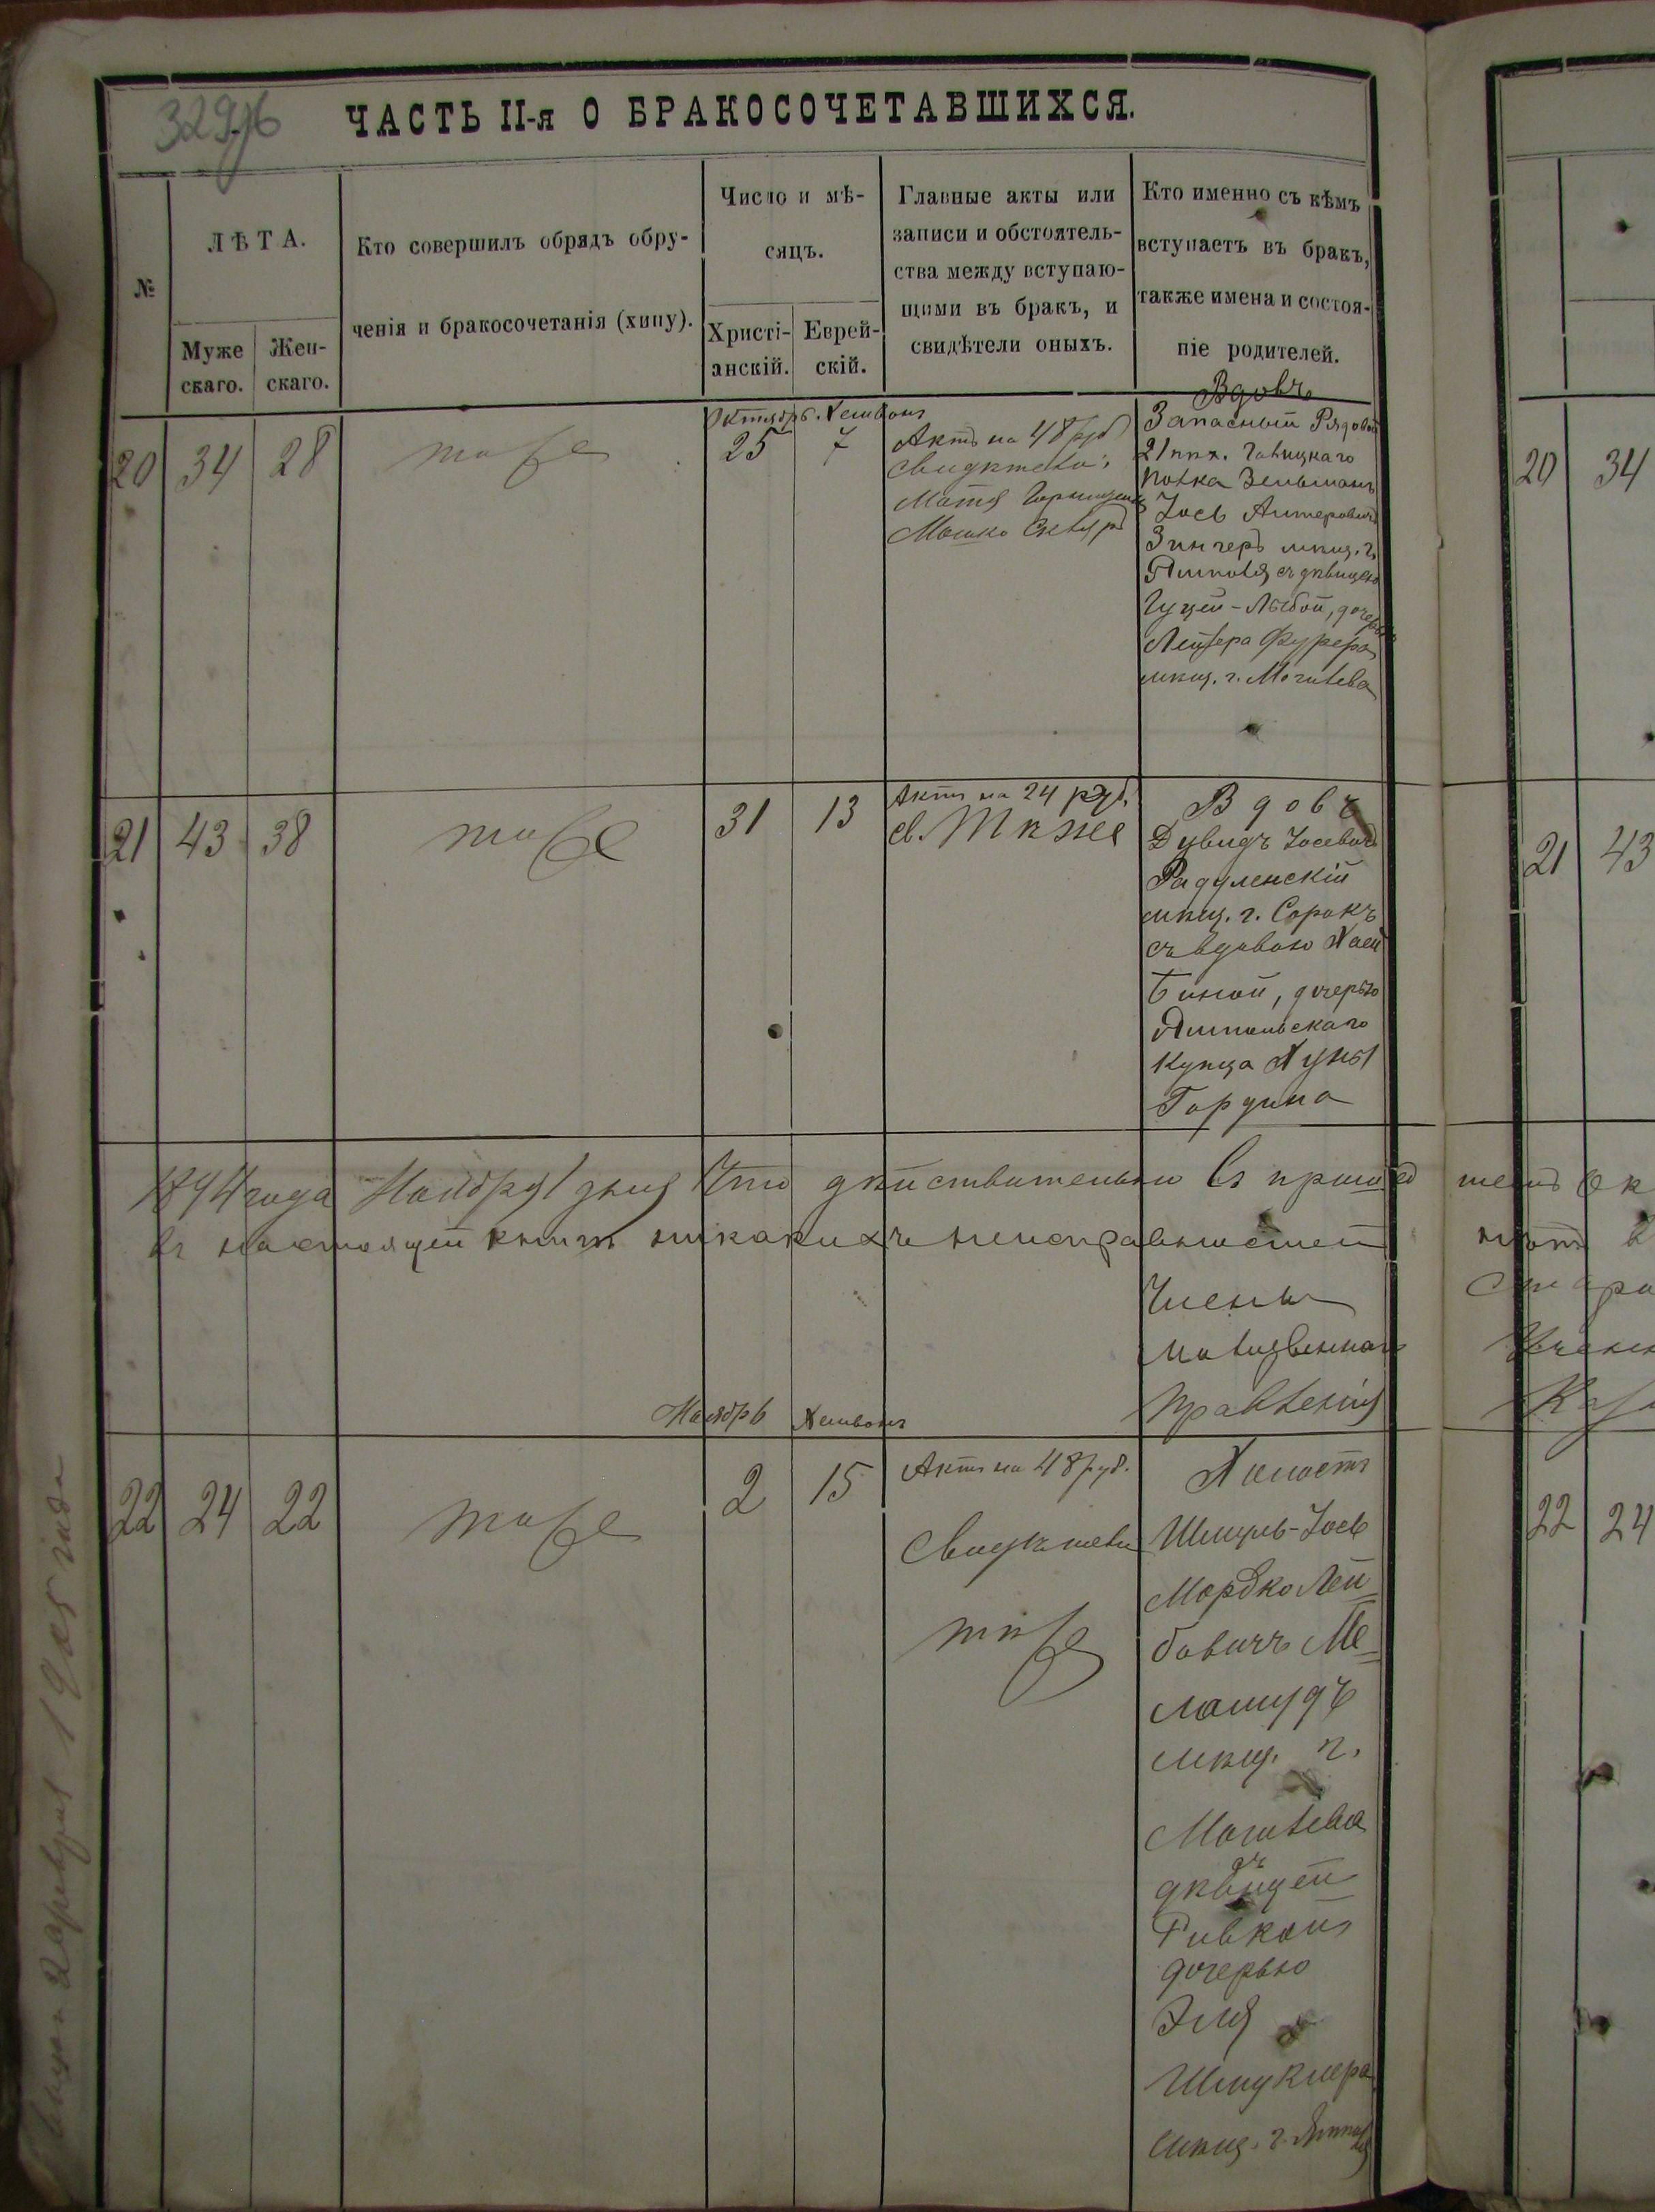 ЧАСТЬ II-я О БРАКОСОЧЕТАВШИХСЯ.
№
ЛѢТА.
Муже
скаго.
Жен-
скаго.
Кто совершилъ обрядъ обру-
ченія и бракосочетанія (хипу).
Число и мѣ-
сяцъ.
Христі-
анскій.
Еврей-
скій.
Главные акты или
записи и обстоятель-
ства между вступаю-
щими въ бракъ, и
свидѣтели оныхъ.
Кто именно съ кѣмъ
вступаетъ въ бракъ,
также имена и состоя-
ніе родителей.
20 34 28
тоже
Октябрь Хешвонъ
25 7
Актъ на 48 руб
Свидѣтели:
Мошко
Вдовъ
Запасный Рядовой
21 пѣх.
полка Зельманъ
Іось
Зингеръ мѣщ. г.
Ямполя съ дѣвицею
дочерью
Лейзера Фурера
мѣщ. г. Могилева
21 43 38
тоже
31 13
Актъ на 24 руб.
св. Тѣже
Вдовъ
Дувидъ Іосевичъ
Радуленскій
мѣщ. г. Сорокъ
съ вдовою Хаей
Биной, дочерью
Ямпольскаго
Купца Хуны
Гордина
1894 года Ноября 1 дня Что дѣйствительно въ прошед
шемъ Ок
въ настоящей книгѣ никакихъ неисправностей
нѣтъ
Члены
Молитвеннаго
Правленія
Ноябрь Хешвонъ
22 24 22
тоже
2 15
Актъ на 48 руб.
Свидѣтели
тѣже
Холостъ
Шмуль-Іось
Мордко Лей-
бовичъ Ме-
ламудъ
мѣщ. г.
Могилева
съ
дѣвицей
Ривкой
дочерью
Эля
Шмуклера
мѣщ. г. Ямполя
20 34
21 43
22 24